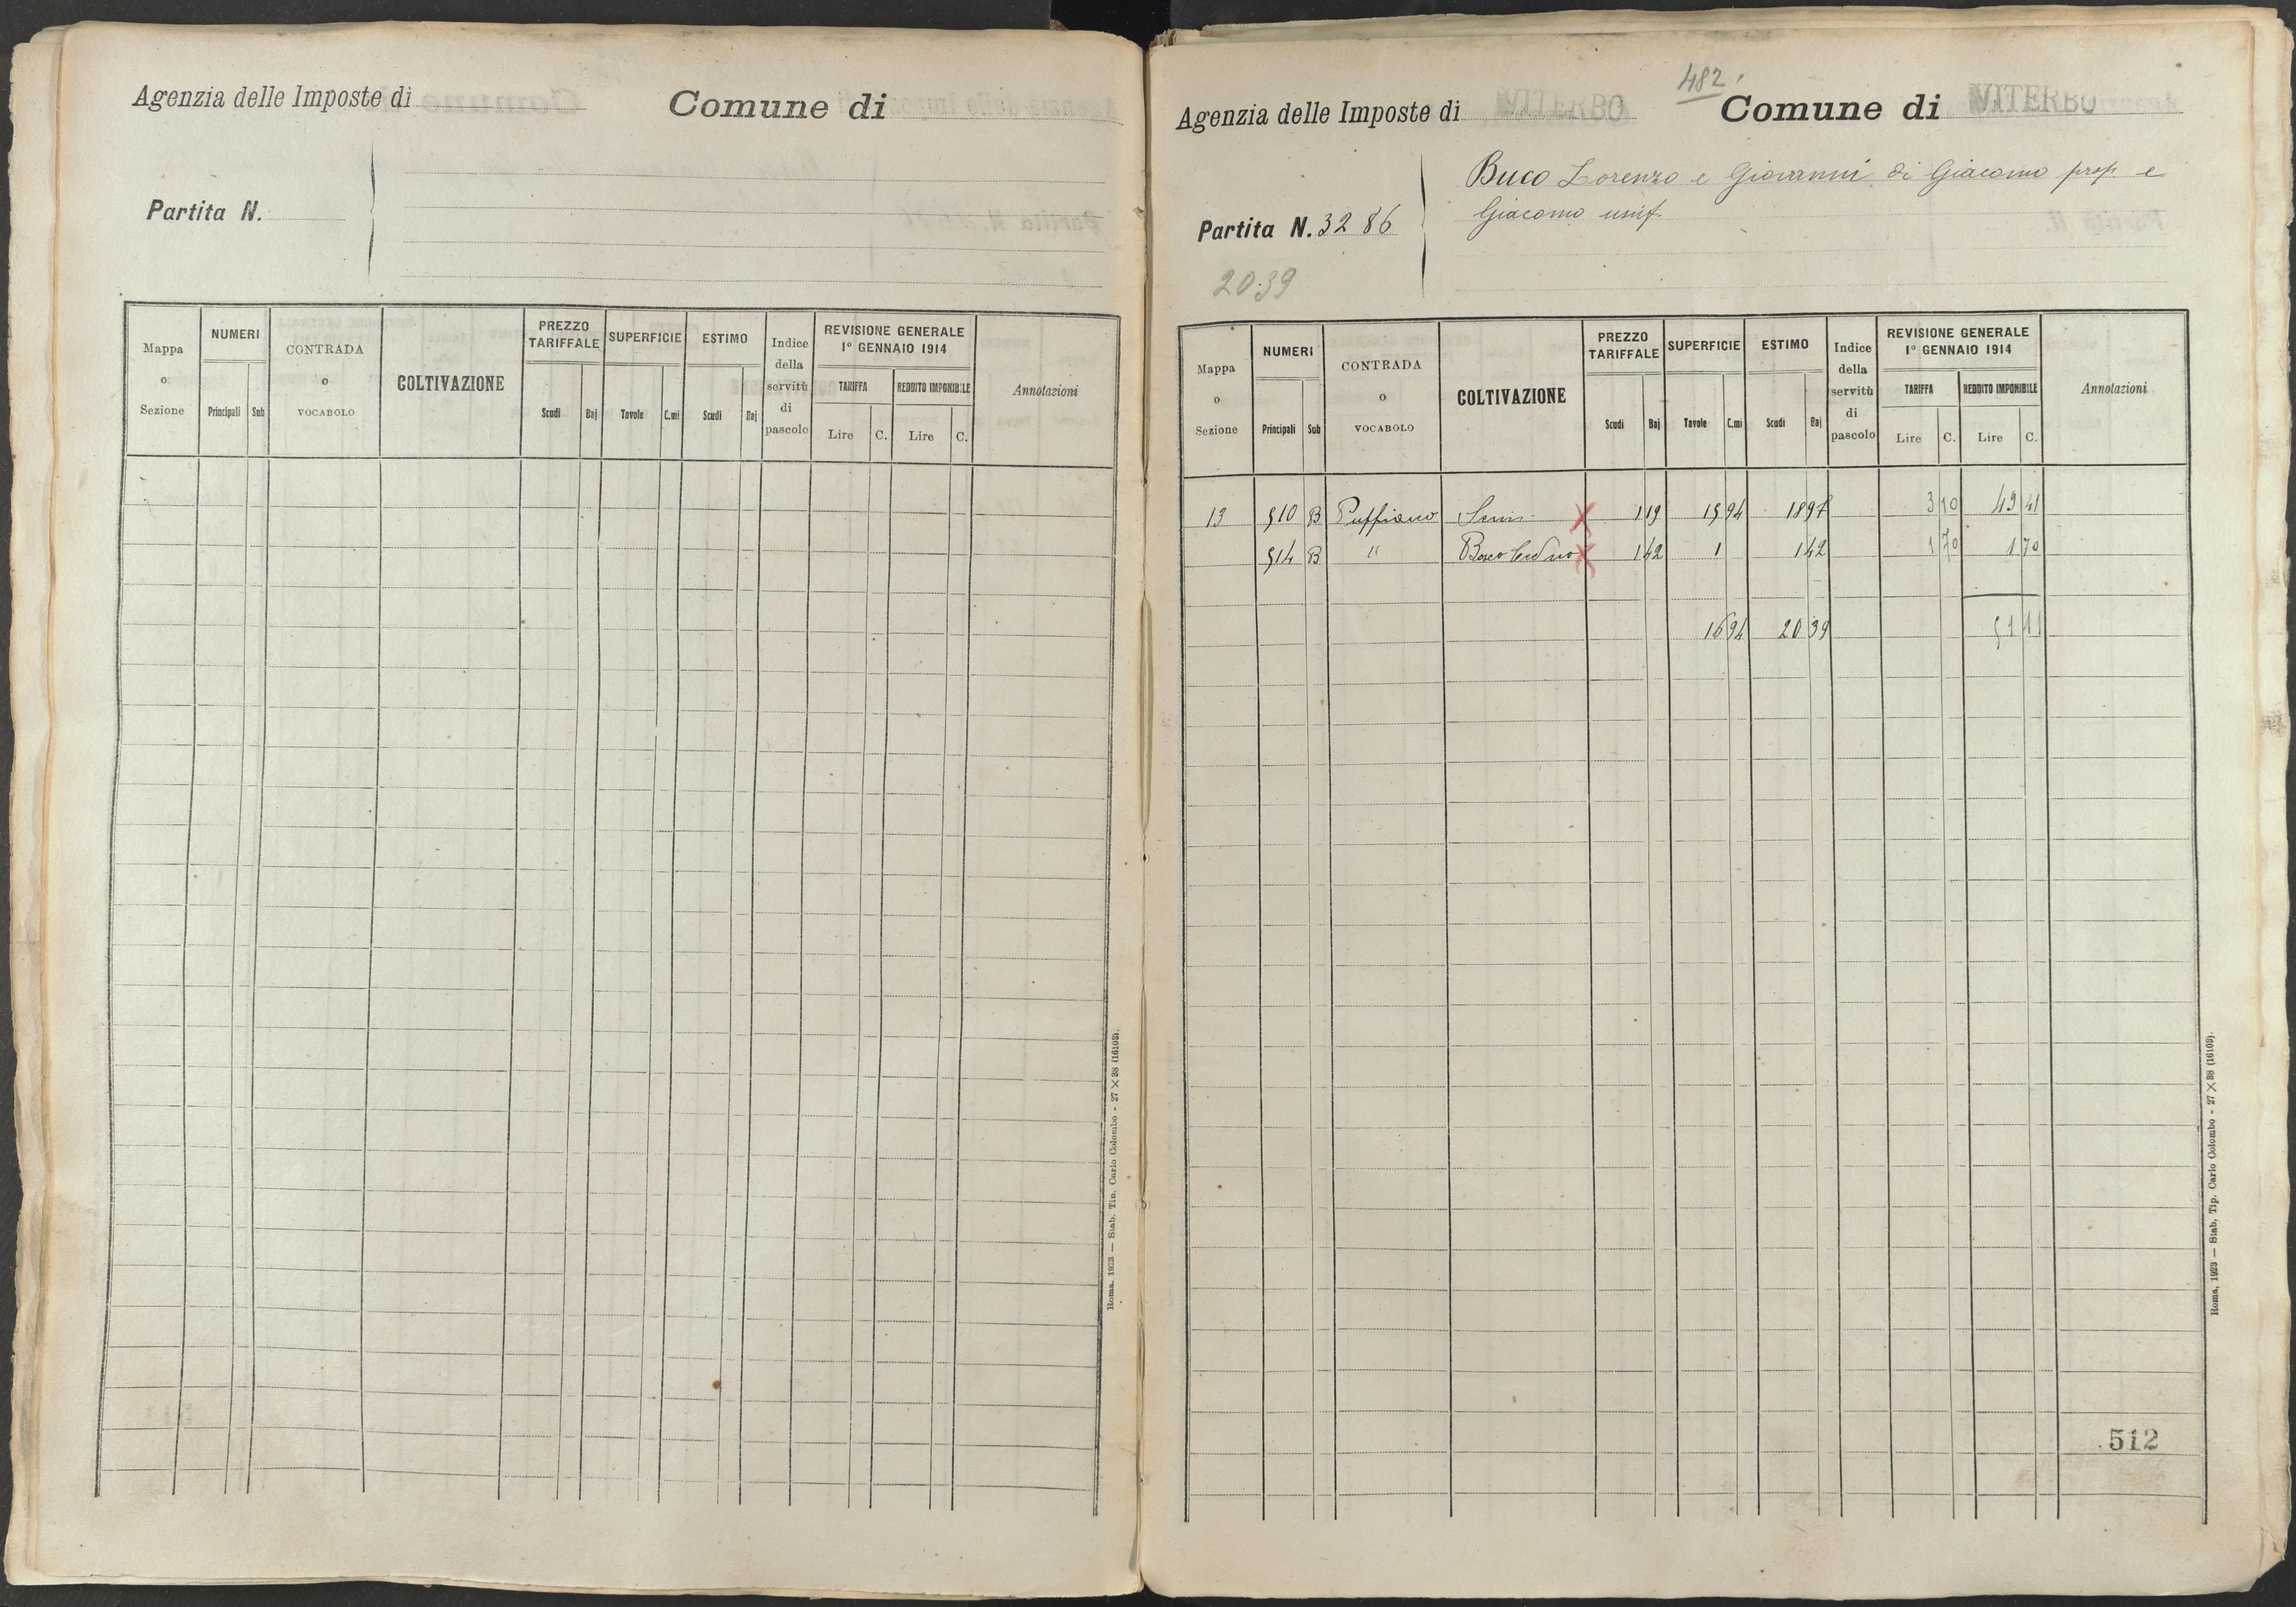 Agenzia delle Imposte di
Comune di
Partita N.
Mappa o Sezione
NUMERI
Principali Sub
CONTRADA o VOCABOLO
COLTIVAZIONE
PREZZO TARIFFALE
Scudi Baj
SUPERFICIE
Tavole C.mi
ESTIMO
Scudi Baj
Indice della servitù di pascolo
REVISIONE GENERALE
1° GENNAIO 1914
TARIFFA REDDITO IMPONIBILE
Lire C. Lire C.
Annotazioni
Roma, 1923 — Stab. Tip. Carlo Colombo - 27 × 38 (16103).
482
Agenzia delle Imposte di VITERBO Comune di VITERBO
Buco Lorenzo e Giovanni di Giacomo prop. e
Giacomo usuf.
Partita N. 3286
20:39
Mappa o Sezione
NUMERI
Principali Sub
CONTRADA o VOCABOLO
COLTIVAZIONE
PREZZO TARIFFALE
Scudi Baj
SUPERFICIE
Tavole C.mi
ESTIMO
Scudi Baj
Indice della servitù di pascolo
REVISIONE GENERALE
1° GENNAIO 1914
TARIFFA REDDITO IMPONIBILE
Lire C. Lire C.
Annotazioni
13 510 B Puffiano Sem. X 1 19 15 94 18 97 3 10 49 41
514 B " Bosco Ceduo X 1 42 1 1 42 1 70 1 70
16 94 20 39 51 11
512
Roma, 1923 — Stab. Tip. Carlo Colombo - 27 × 38 (16103).